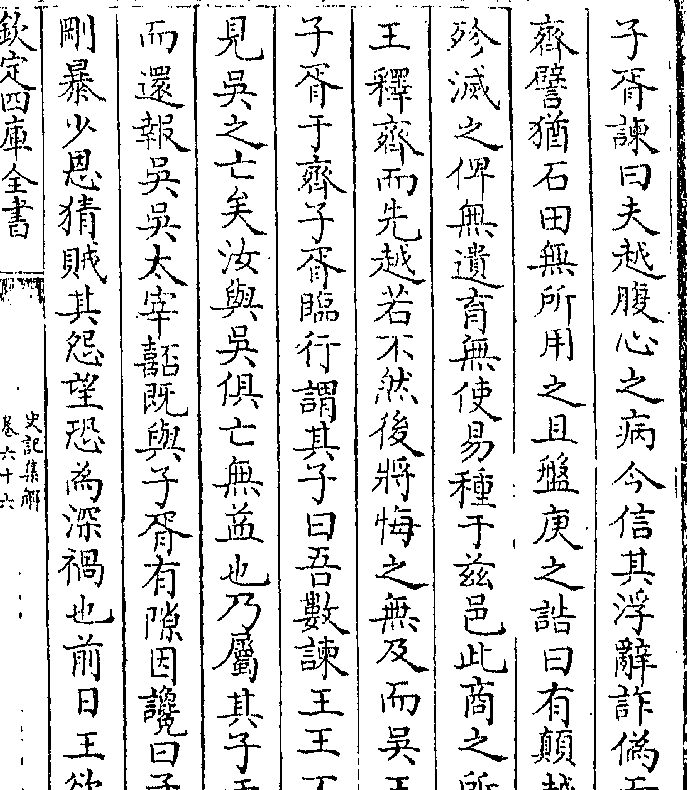 子胥諫曰夫越腹心之病今信其浮辭詐僞而
齊譬猶石田無所用之且盤庚之誥曰有顛越
殄滅之俾無遺育無使易種于兹邑此商之所
王釋齊而先越若不然後將悔之無及而吳王
子胥于齊子胥臨行謂其子曰吾數諫王王不
見吳之亡矣汝與吳俱亡無益也乃屬其子于
而還報吳吳太宰嚭既與子胥有隙因讒曰子
剛暴少恩猜賊其怨望恐為深禍也前日王欲
欽定四庫全書
史記集解
卷六十六